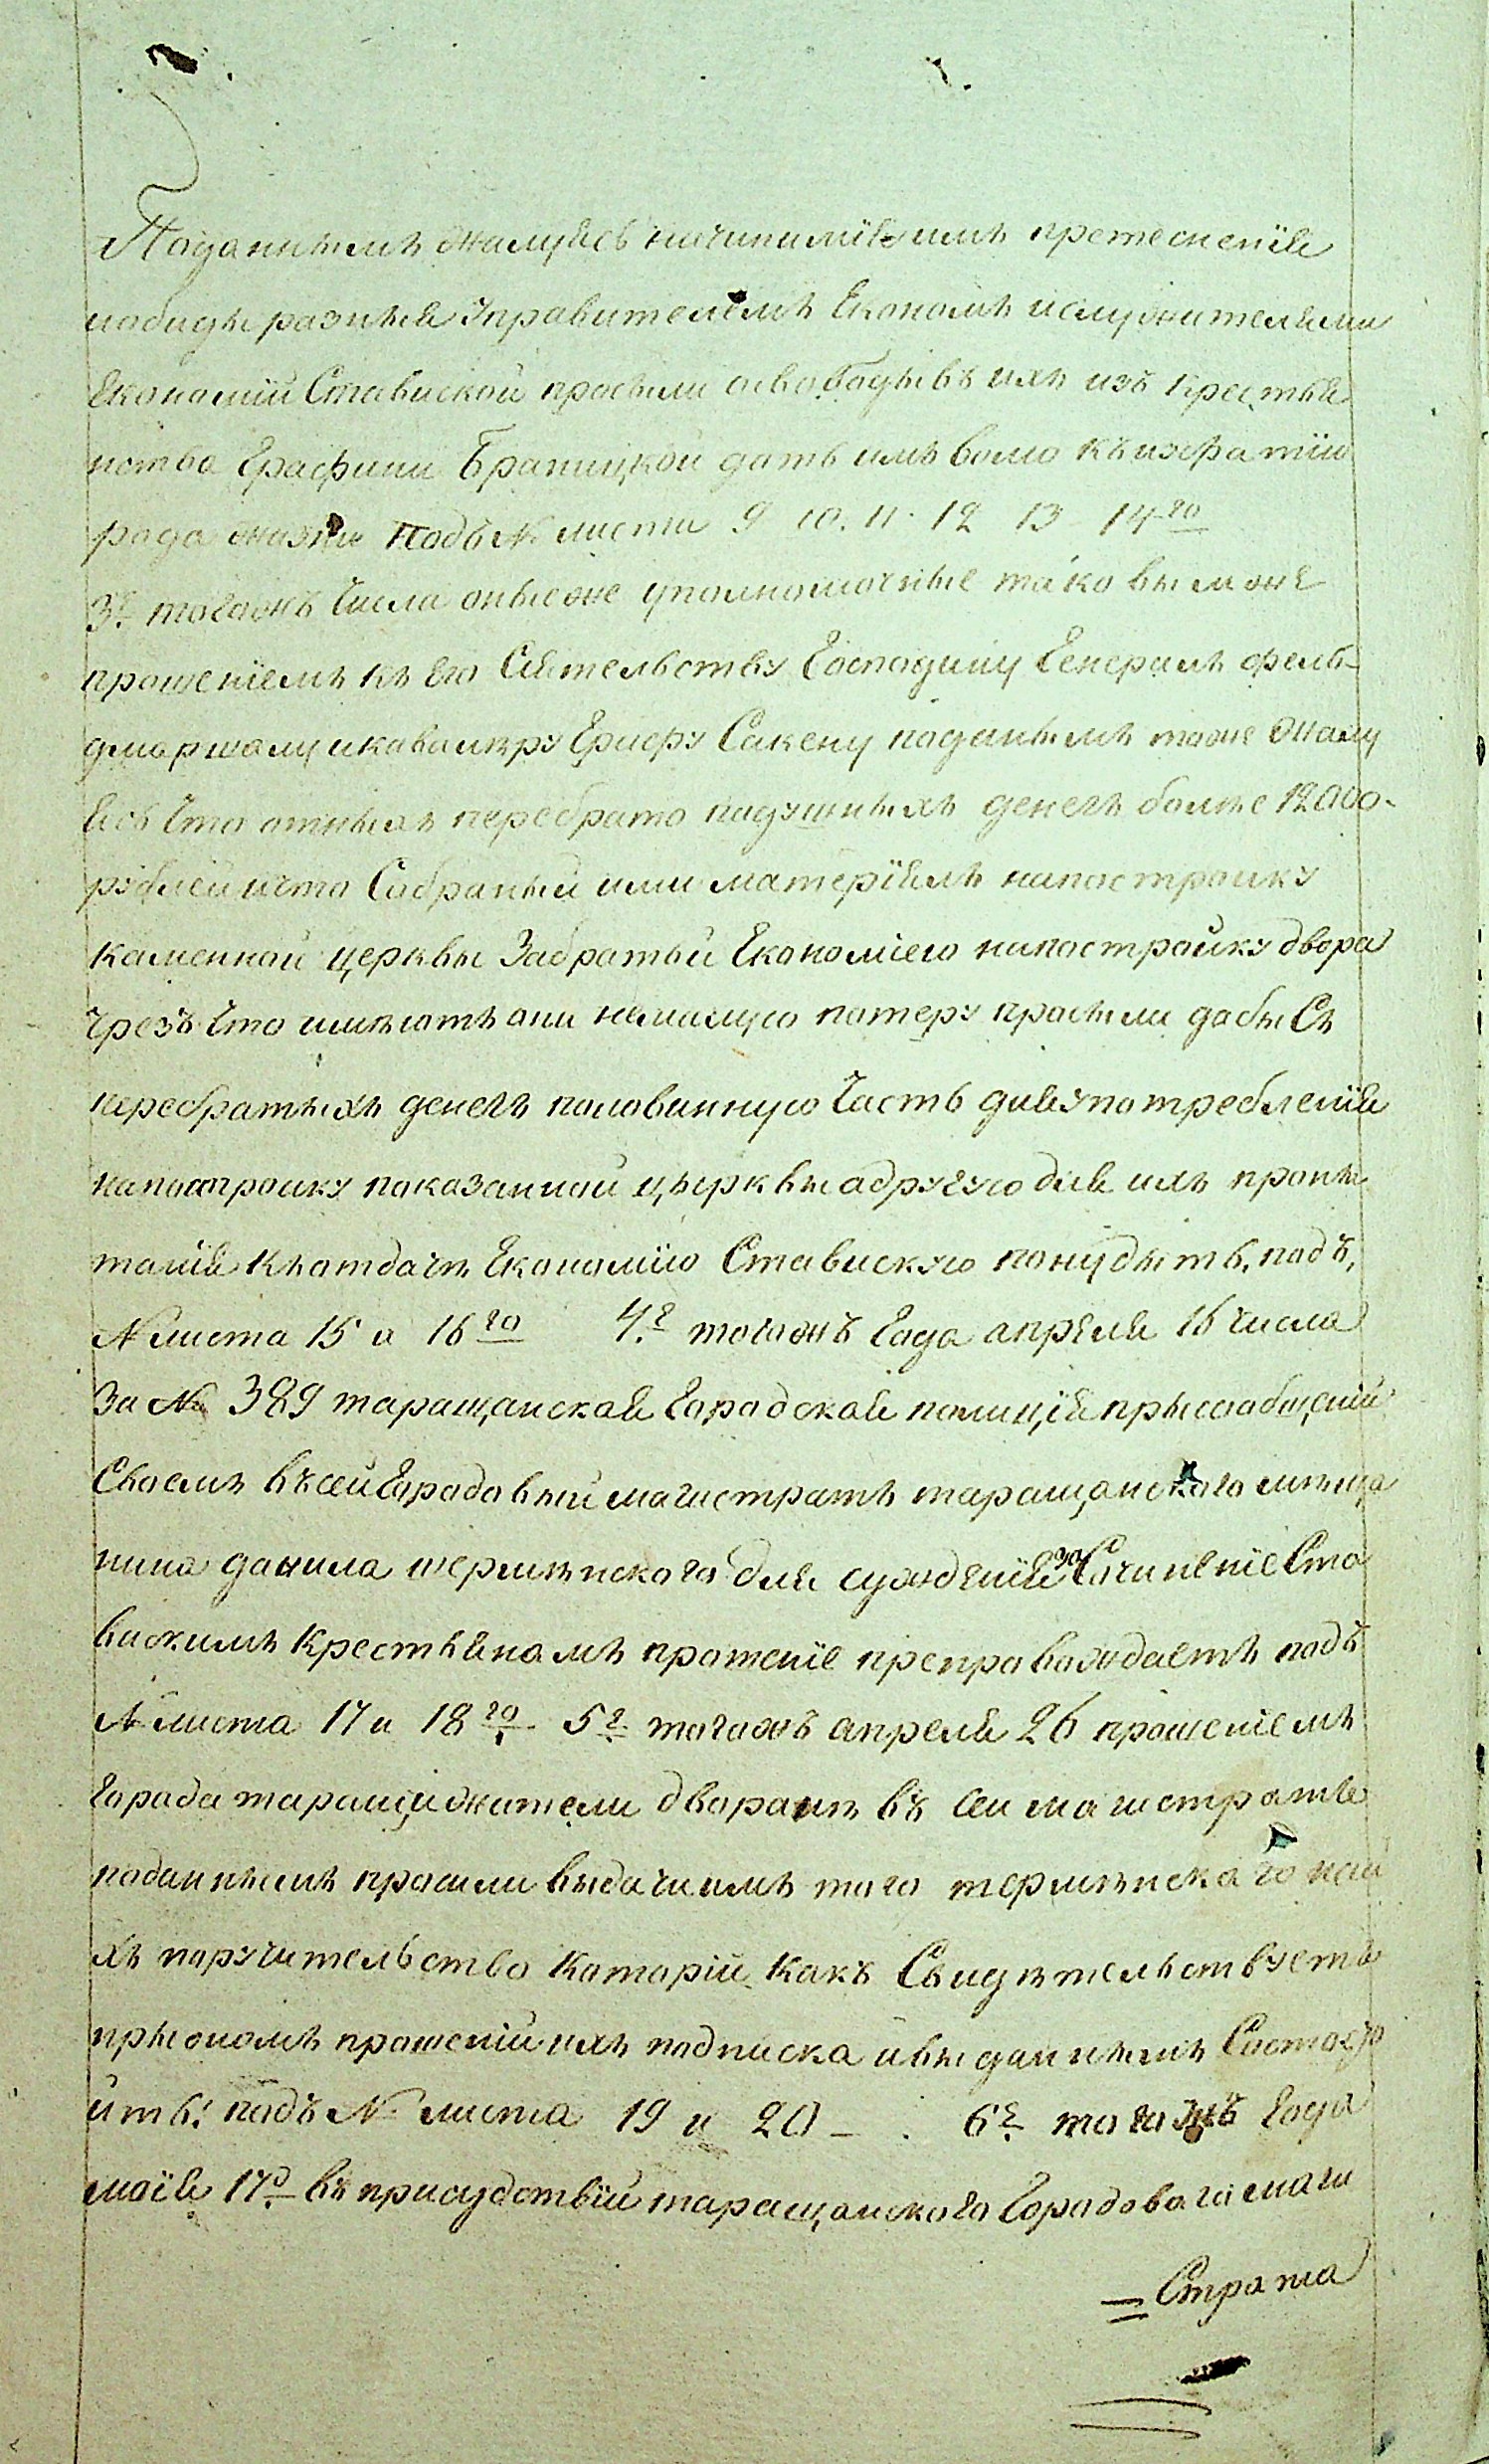 Поданнымъ жалуясь начинимїя имъ претеснения
иобиды разныя Управителемъ Економъ ислужителями
Економїи Ставиской просыли освободывъ ихъ изъ крестья
нства Графини Браницкой дать имъ волю къизбратїю
рода жизни подъ № листа 9 10. 11. 12 13 14го
3е тогожъ Числа оныеже уполномочные таковымже
прошенїемъ къ Его Сіятельству Господину Генералъ фель-
дмаршалу икавалеру Графу Сакену поданнымъ тоже жалу
ясь Что отныхъ перебрато подушныхъ денегъ болѣе 12000-
рублей ичто Собраный ими матерїялъ напостройку
каменной церквы Забратый Економїею напостройку двора
Чрезъ Что имѣютъ они немалую потерю просыли дабы Съ
перебратыхъ денегъ половинную Часть дляупотребленїя
напостройку показанной цырквы адругую для ихъ пропы
танїя къотдачѣ Економїю Ставискую понудыть, подъ,
№ листа 15 и 16го 4.е тогожъ Года апреля 16 числа
За № 389 таращанская Городская полицїя прысообщенїи
Своемъ въсей Городовый магистратъ таращанского мѣща
нина данила шермѣнского для сужденїя за Сочиненїе Ста
вискимъ Крестьянамъ прошенїе препровождаетъ подъ
№ листа 17 и 18го. 5е. тогожъ апреля 26 прошенїемъ
Города таращи жители дворянъ въ сей магистратъ
поданнымъ просили выдачиимъ того шермѣнского наи
хъ поручительство Которїй какъ Свидѣтельствуетъ
прыономъ прошенїи ихъ подписка ивыданнымъ Состо
итъ: подъ № листа 19 и 20 - . 6е. тогожъ Года
маїя 17.о въ присудствїи таращанского Городоваго маги
= Страта